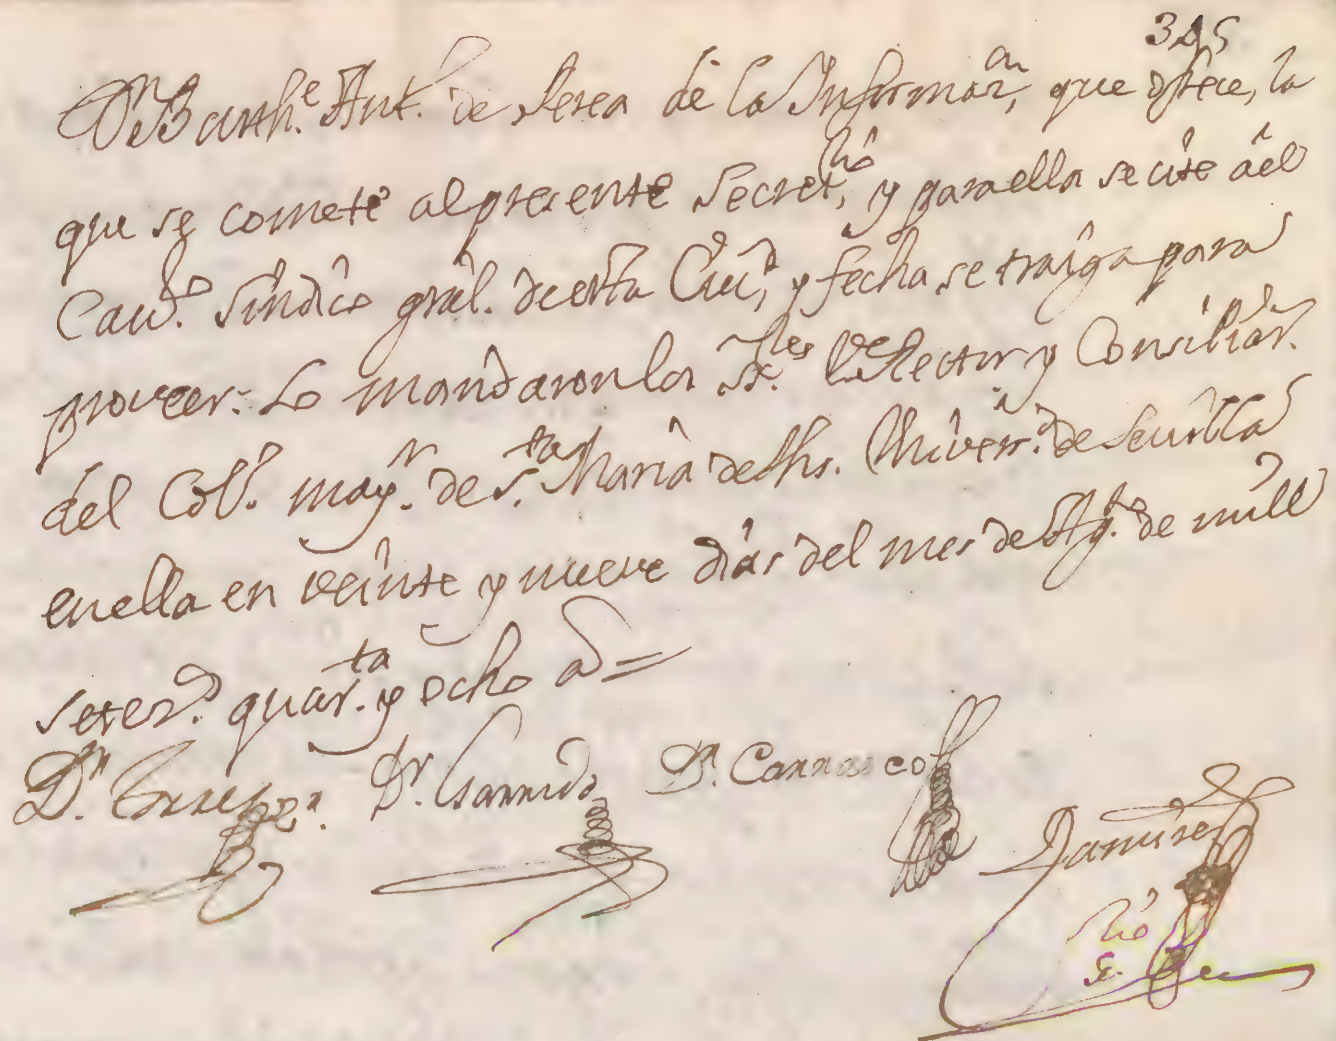 345
Dn Barthe. Ant. de Perea dè la Informaon, que ofrece, la
que se comete al presente Secretrio, y para ella se cite âel
Cavro. sindico gral. de esta Ciud, y fecha se traiga para
proveer. Lo mandaron los Sres. Rector y Consiliar.
del Col. mayr. de Sta. Maria de Jhs. Univerd. de Sevilla
en ella en veinte y nueve dias del mes de Agto. de mill
setezos. quarta. y ocho as =
Dn.
Dr. Garrido
Dr. Carrasco
Ramirez
Srio